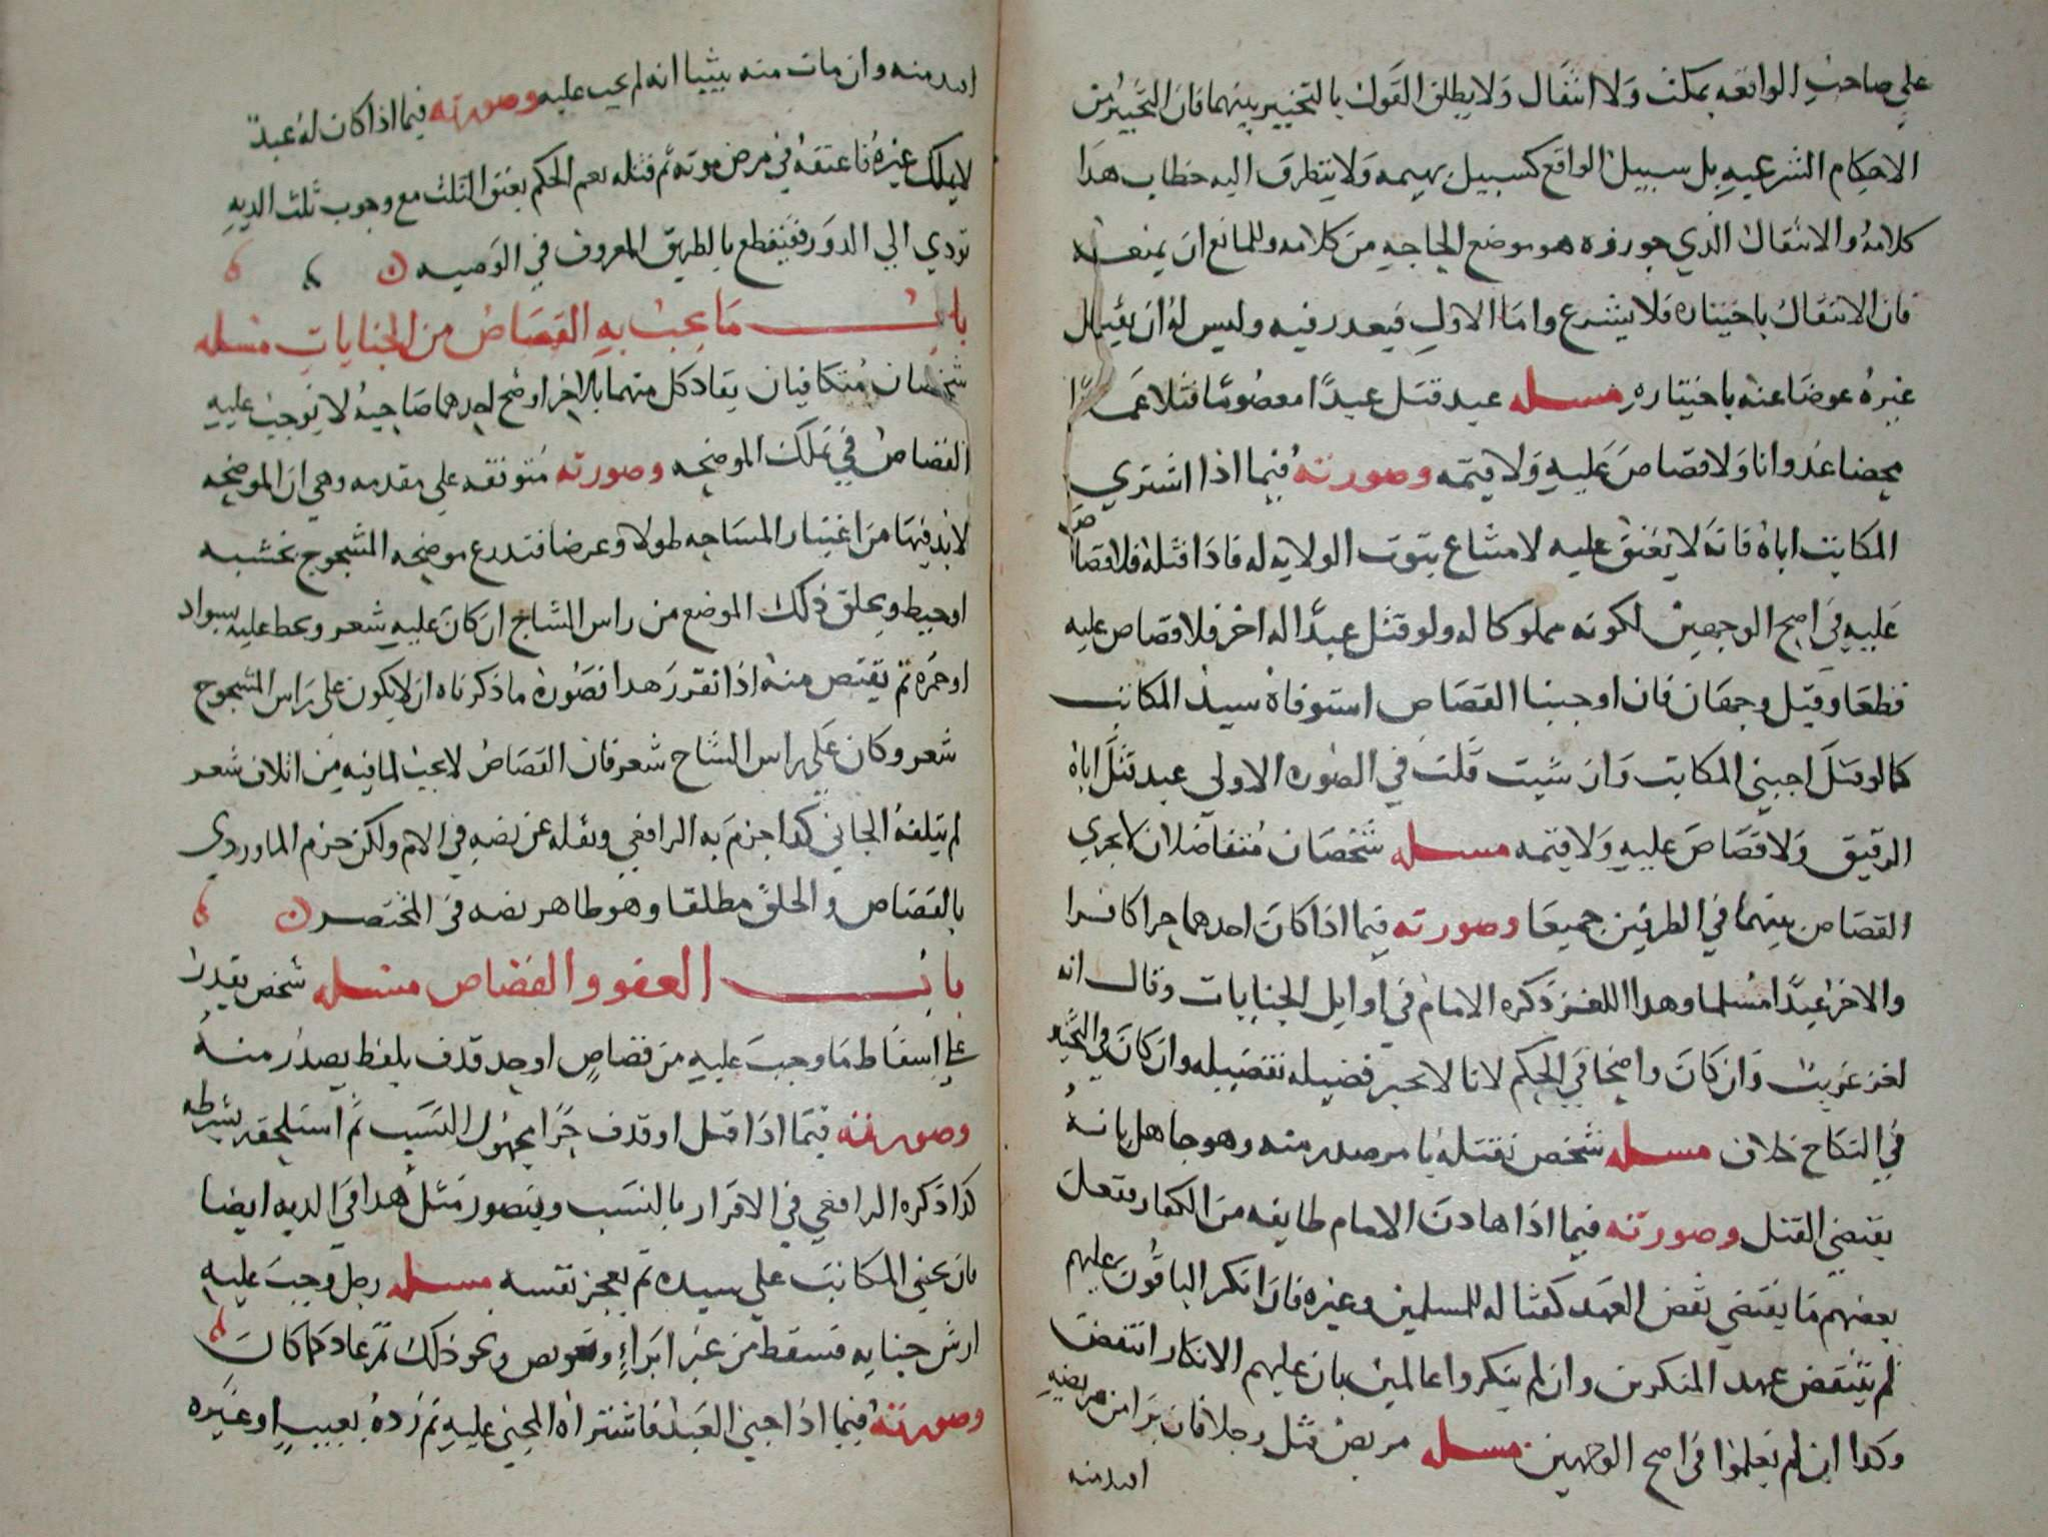 على صاحب الواقعه بمكث ولا انتقال ولا يطلق القول بالتخيير بينهما فان التخيير من
الاحكام الشرعيه بل سبيل الواقع كسبيل بهيمه ولا يتطرق اليه خطاب هدا
كلامه والانتقال الذي جوزه هو موضع الحاجه من كلامه وللمانع ان يمنعه
فان الانتقال باختياره فلا يشرع واما الاول فيعدر فيه وليس له ان يقتل
غيره عوضا عنه باختياره مسله عبد قتل عبدًا معصومًا قتلا عمدًا
محضا عدوانا ولا قصاص عليه ولا قيمه وصورته فيما اذا اشترى
المكاتب اباه فانه لا يعتق عليه لامتناع ثبوت الولايه له فاذا قتله فلا قصاص
عليه في اصح الوجهين لكونه مملوكا له ولو قتل عبدًا له اخر فلا قصاص عليه
قطعا وقيل وجهان فان اوجبنا القصاص استوفاه سيد المكاتب
كما لو قتل اجنبي المكاتب وان شيت قلت في الصوره الاولى عبد قتل اباه
الرقيق ولا قصاص عليه ولا قيمه مسله شخصان متفاضلان لا يجري
القصاص بينهما في الطرفين جميعا وصورته فيما اذا كان احدهما حرا كافرا
والاخر عبدًا مسلما وهدا اللغز ذكره الامام في اوايل الجنايات وقال انه
لغز غريب وان كان واضحا في الحكم لانا لا نجبر فضيله بفضيله وان كان في الجبر
في النكاح خلاف مسله شخص نقتله بامر صدر منه وهو جاهل بانه
يقتضي القتل وصورته فيما اذا هادن الامام طايفه من الكفار ففعل
بعضهم ما يقتضي نقض العهد كقتاله للمسلمين وغيره فان انكر الباقون عليهم
لم ينتقض عهد المنكرين وان لم ينكروا عالمين بان عليهم الانكار انتقض
وكدا ان لم يعلموا في اصح الوجهين مسله مريض قتل رجلا فان برا من مرضه
اقيد منه
اقيد منه وان مات منه تبينا انه لم يجب عليه وصورته فيما اذا كان له عبد
لا يملك غيره فاعتقه في مرض موته ثم قتله نعم الحكم بعتق الثلث مع وجوب ثلث الديه
تودي الى الدور فينقطع بالطريق المعروف في الوصيه
باب ما يجب به القصاص من الجنايات مسله
شخصان متكافيان يقاد كل منهما بالاخر اوضح احدهما صاحبه لا نوجب عليه
القصاص في تلك الموضحه وصورته متوقفه على مقدمه وهي ان الموضحه
لابد فيها من اعتبار المساحه طولا وعرضا فتدرع موضحه المشجوج بخشبه
او خيط ويحلق ذلك الموضع من راس الشاج ان كان عليه شعر ويخط عليه بسواد
او حمره ثم يقتص منه اذا تقرر هدا فصوره ما ذكرناه ان لا يكون على راس المشجوج
شعر وكان على راس الشاج شعر فان القصاص لا يجب لما فيه من اتلاف شعر
لم يتلفه الجاني كدا جزم به الرافعي ونقله عن نصه في الام ولكن جزم الماوردي
بالقصاص والحلق مطلقا وهو ظاهر نصه في المختصر
باب العفو والقصاص مسله شخص يقدر
على اسقاط ما وجب عليه من قصاص او حد قدف بلفظ يصدر منه
وصورته فيما اذا قتل او قدف حرًا مجهول النسب ثم استلحقه بشرطه
كدا ذكره الرافعي في الاقرار بالنسب ويتصور مثل هدا في الديه ايضا
بان يجني المكاتب على سيده ثم يعجز نفسه مسله رجل وجب عليه
ارش جنايه فسقط من غير ابراءٍ وتعويض ونحو ذلك ثم عاد كما كان
وصورته فيما اذا جنى العبد فاشتراه المجني عليه ثم رده بعيب او غيره